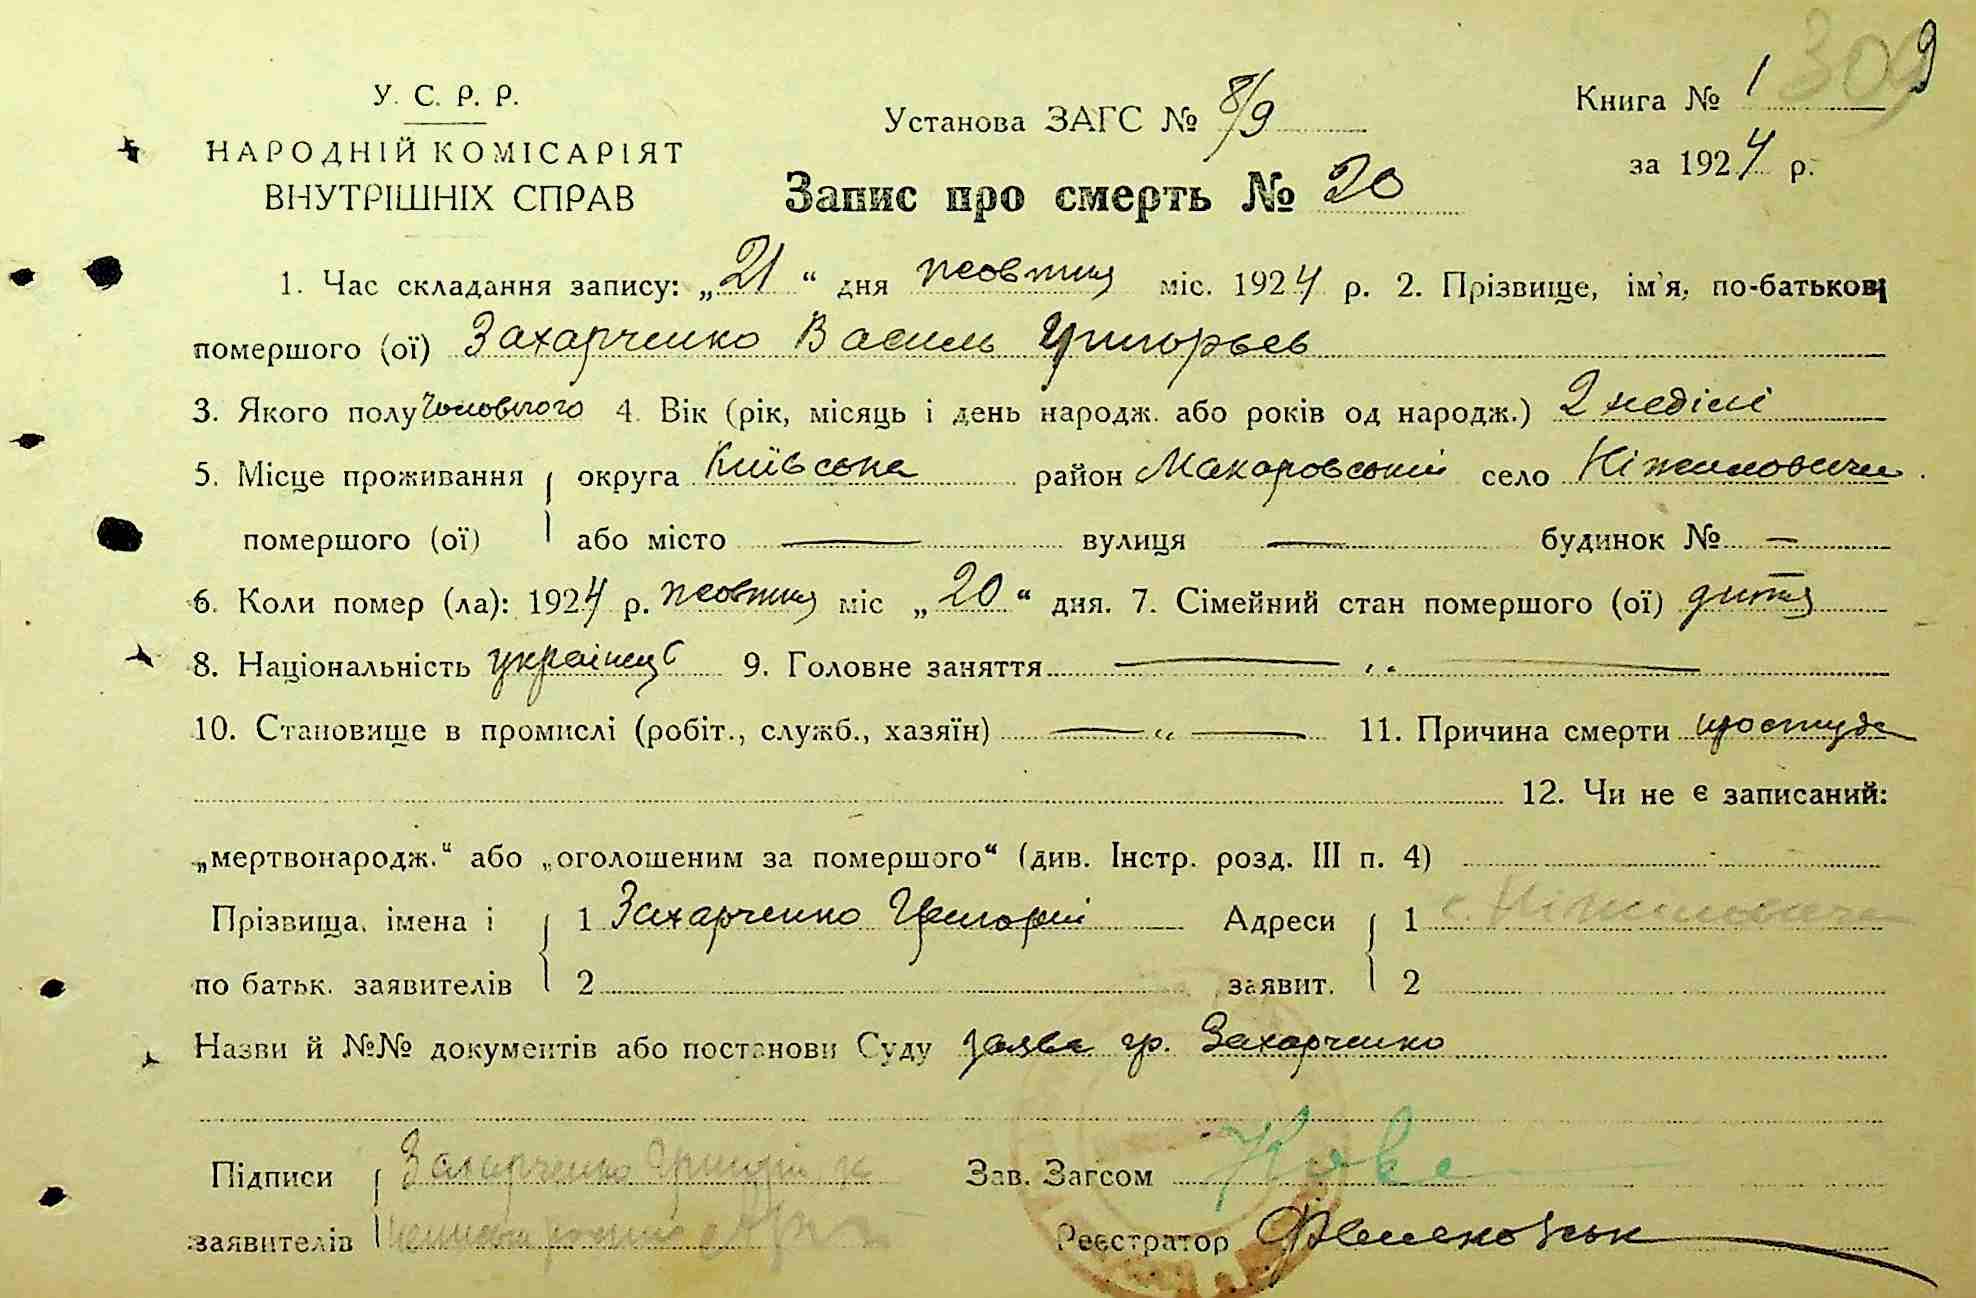 309
9
У. С. Р. Р.
НАРОДНІЙ КОМІСАРІЯТ
ВНУТРІШНІХ СПРАВ
Установа ЗАГС № 8/9
Книга № 1
за 1924 р.
Запис про смерть № 20
1. Час складання запису: „21“ дня жовтня міс. 1924 р. 2. Прізвище, ім'я, по-батькові
помершого (ої) Захарченко Василь Григорьев
3. Якого полу Чоловічого 4. Вік (рік, місяць і день народж. або років од народж.) 2 неділі
5. Місце проживання округа Київська район Макаровський село Ніжиловичи
помершого (ої) або місто — вулиця — будинок № —
6. Коли помер (ла): 1924 р. жовтня міс „20“ дня. 7. Сімейний стан помершого (ої) дитя
8. Національність українец 9. Головне заняття — „ —
10. Становище в промислі (робіт., служб., хазяїн) — „ — 11. Причина смерти простуда
12. Чи не є записаний:
„мертвонародж.“ або „оголошеним за помершого“ (див. Інстр. розд. III п. 4)
Прізвища, імена і 1 Захарченко Григорій Адреси 1 с. Ніжиловичи
по батьк. заявителів 2 заявит. 2
Назви й №№ документів або постанови Суду заява гр. Захарченко
Підписи Захарченко Зав. Загсом
заявителів Реєстратор